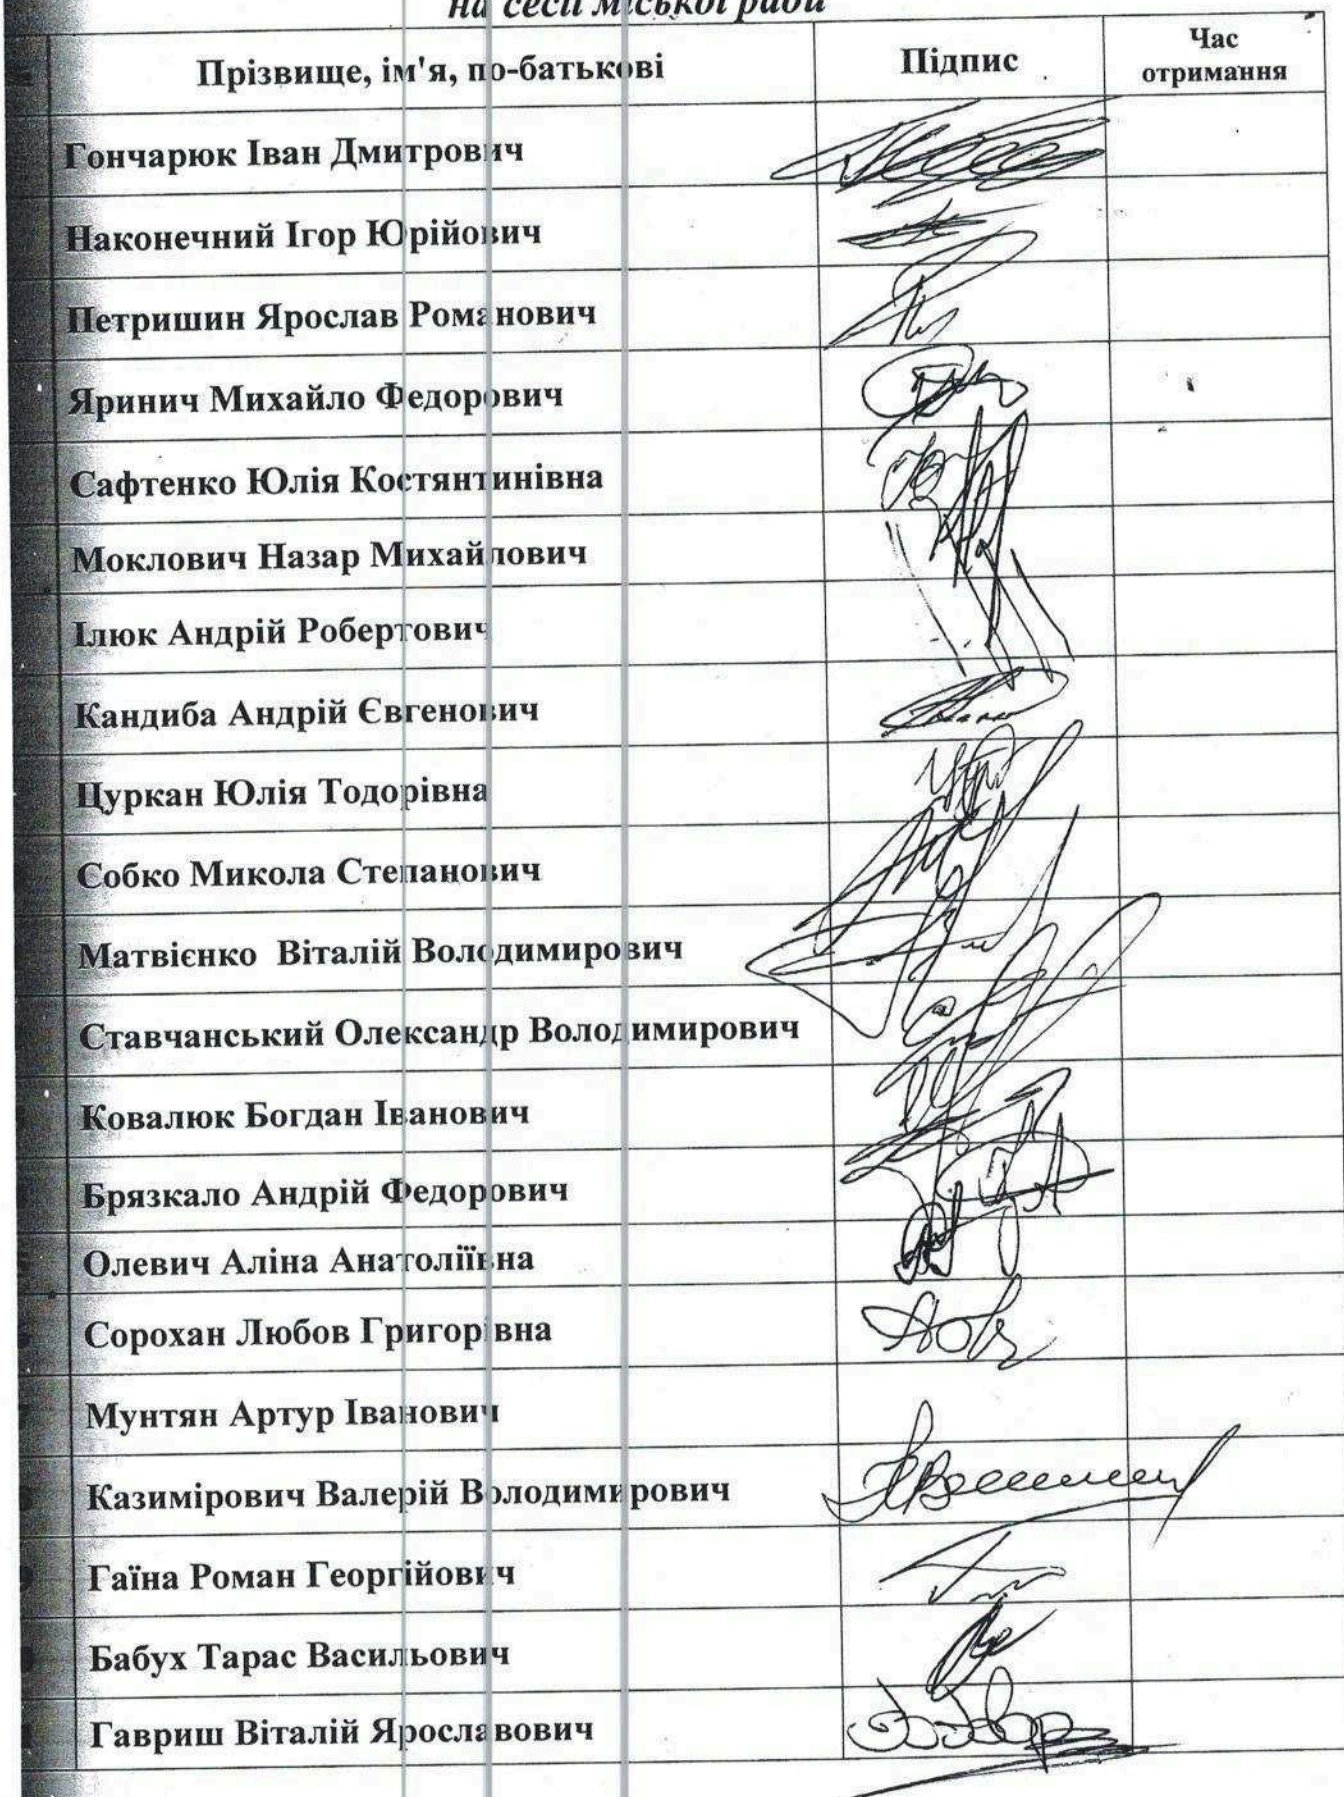 на сесії міської ради
Прізвище, ім'я, по-батькові Підпис Час
отримання
Гончарюк Іван Дмитрович
Наконечний Ігор Юрійович
Петришин Ярослав Романович
Яринич Михайло Федорович
Сафтенко Юлія Костянтинівна
Моклович Назар Михайлович
Ілюк Андрій Робертович
Кандиба Андрій Євгенович
Цуркан Юлія Тодорівна
Собко Микола Степанович
Матвієнко Віталій Володимирович
Ставчанський Олександр Володимирович
Ковалюк Богдан Іванович
Брязкало Андрій Федорович
Олевич Аліна Анатоліївна
Сорохан Любов Григорівна
Мунтян Артур Іванович
Казимірович Валерій Володимирович
Гаїна Роман Георгійович
Бабух Тарас Васильович
Гавриш Віталій Ярославович